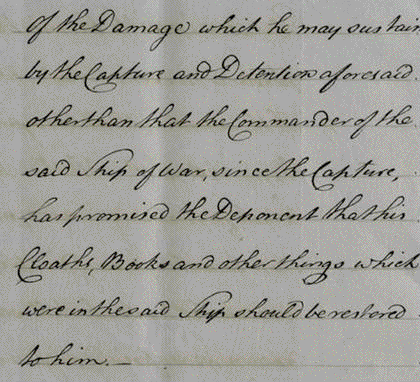 of the Damage which he may sustain
by the Capture and Detention aforesaid
other than that the Commander of the
said Ship of War, since the Capture,
has promised the Deponent that his
Cloaths, Books and other things which
were in the said Ship should be restored
to him.—